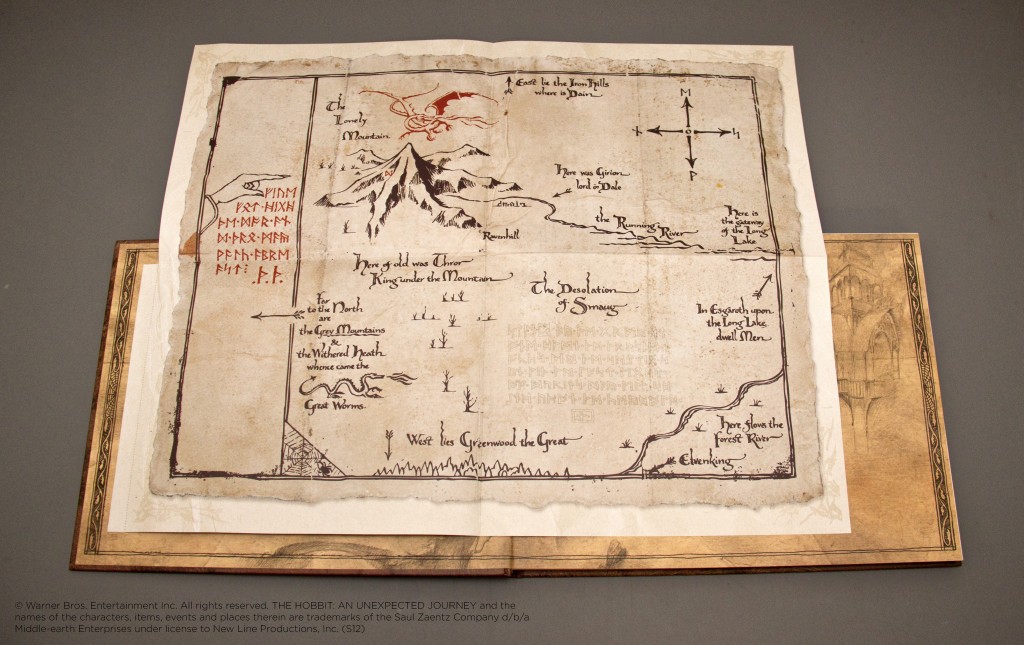 East lie the Iron Hills
where is Dain
The
Lonely
Mountain
Here was Girion
lord in Dale
the Running River
Here is
the gateway
of the Long
Lake
Ravenhill
ᚠᛁᚢᛖ
ᚠᛟᛏ·ᚻᛁᚷᚻ
ᚦᛖ·ᛞᚩᚱ·ᚪᚾ
ᛞ·ᚦᚱᛟ·ᛗᚪᚣ
ᚹᚪᛚᚳ·ᚪᛒᚱᛖ
ᚪᛋᛏ᛬
ᚦ·ᚦ·
Here of old was Thror
King under the Mountain
The Desolation
of Smaug
Far
to the North
are
the Grey Mountains
&
the Withered Heath
whence came the
Great Worms
In Esgaroth upon
the Long Lake
dwell Men
West lies Greenwood the Great
Here flows the
Forest River
Elvenking
© Warner Bros. Entertainment Inc. All rights reserved. THE HOBBIT: AN UNEXPECTED JOURNEY and the
names of the characters, items, events and places therein are trademarks of the Saul Zaentz Company d/b/a
Middle-earth Enterprises under license to New Line Productions, Inc. (S12)